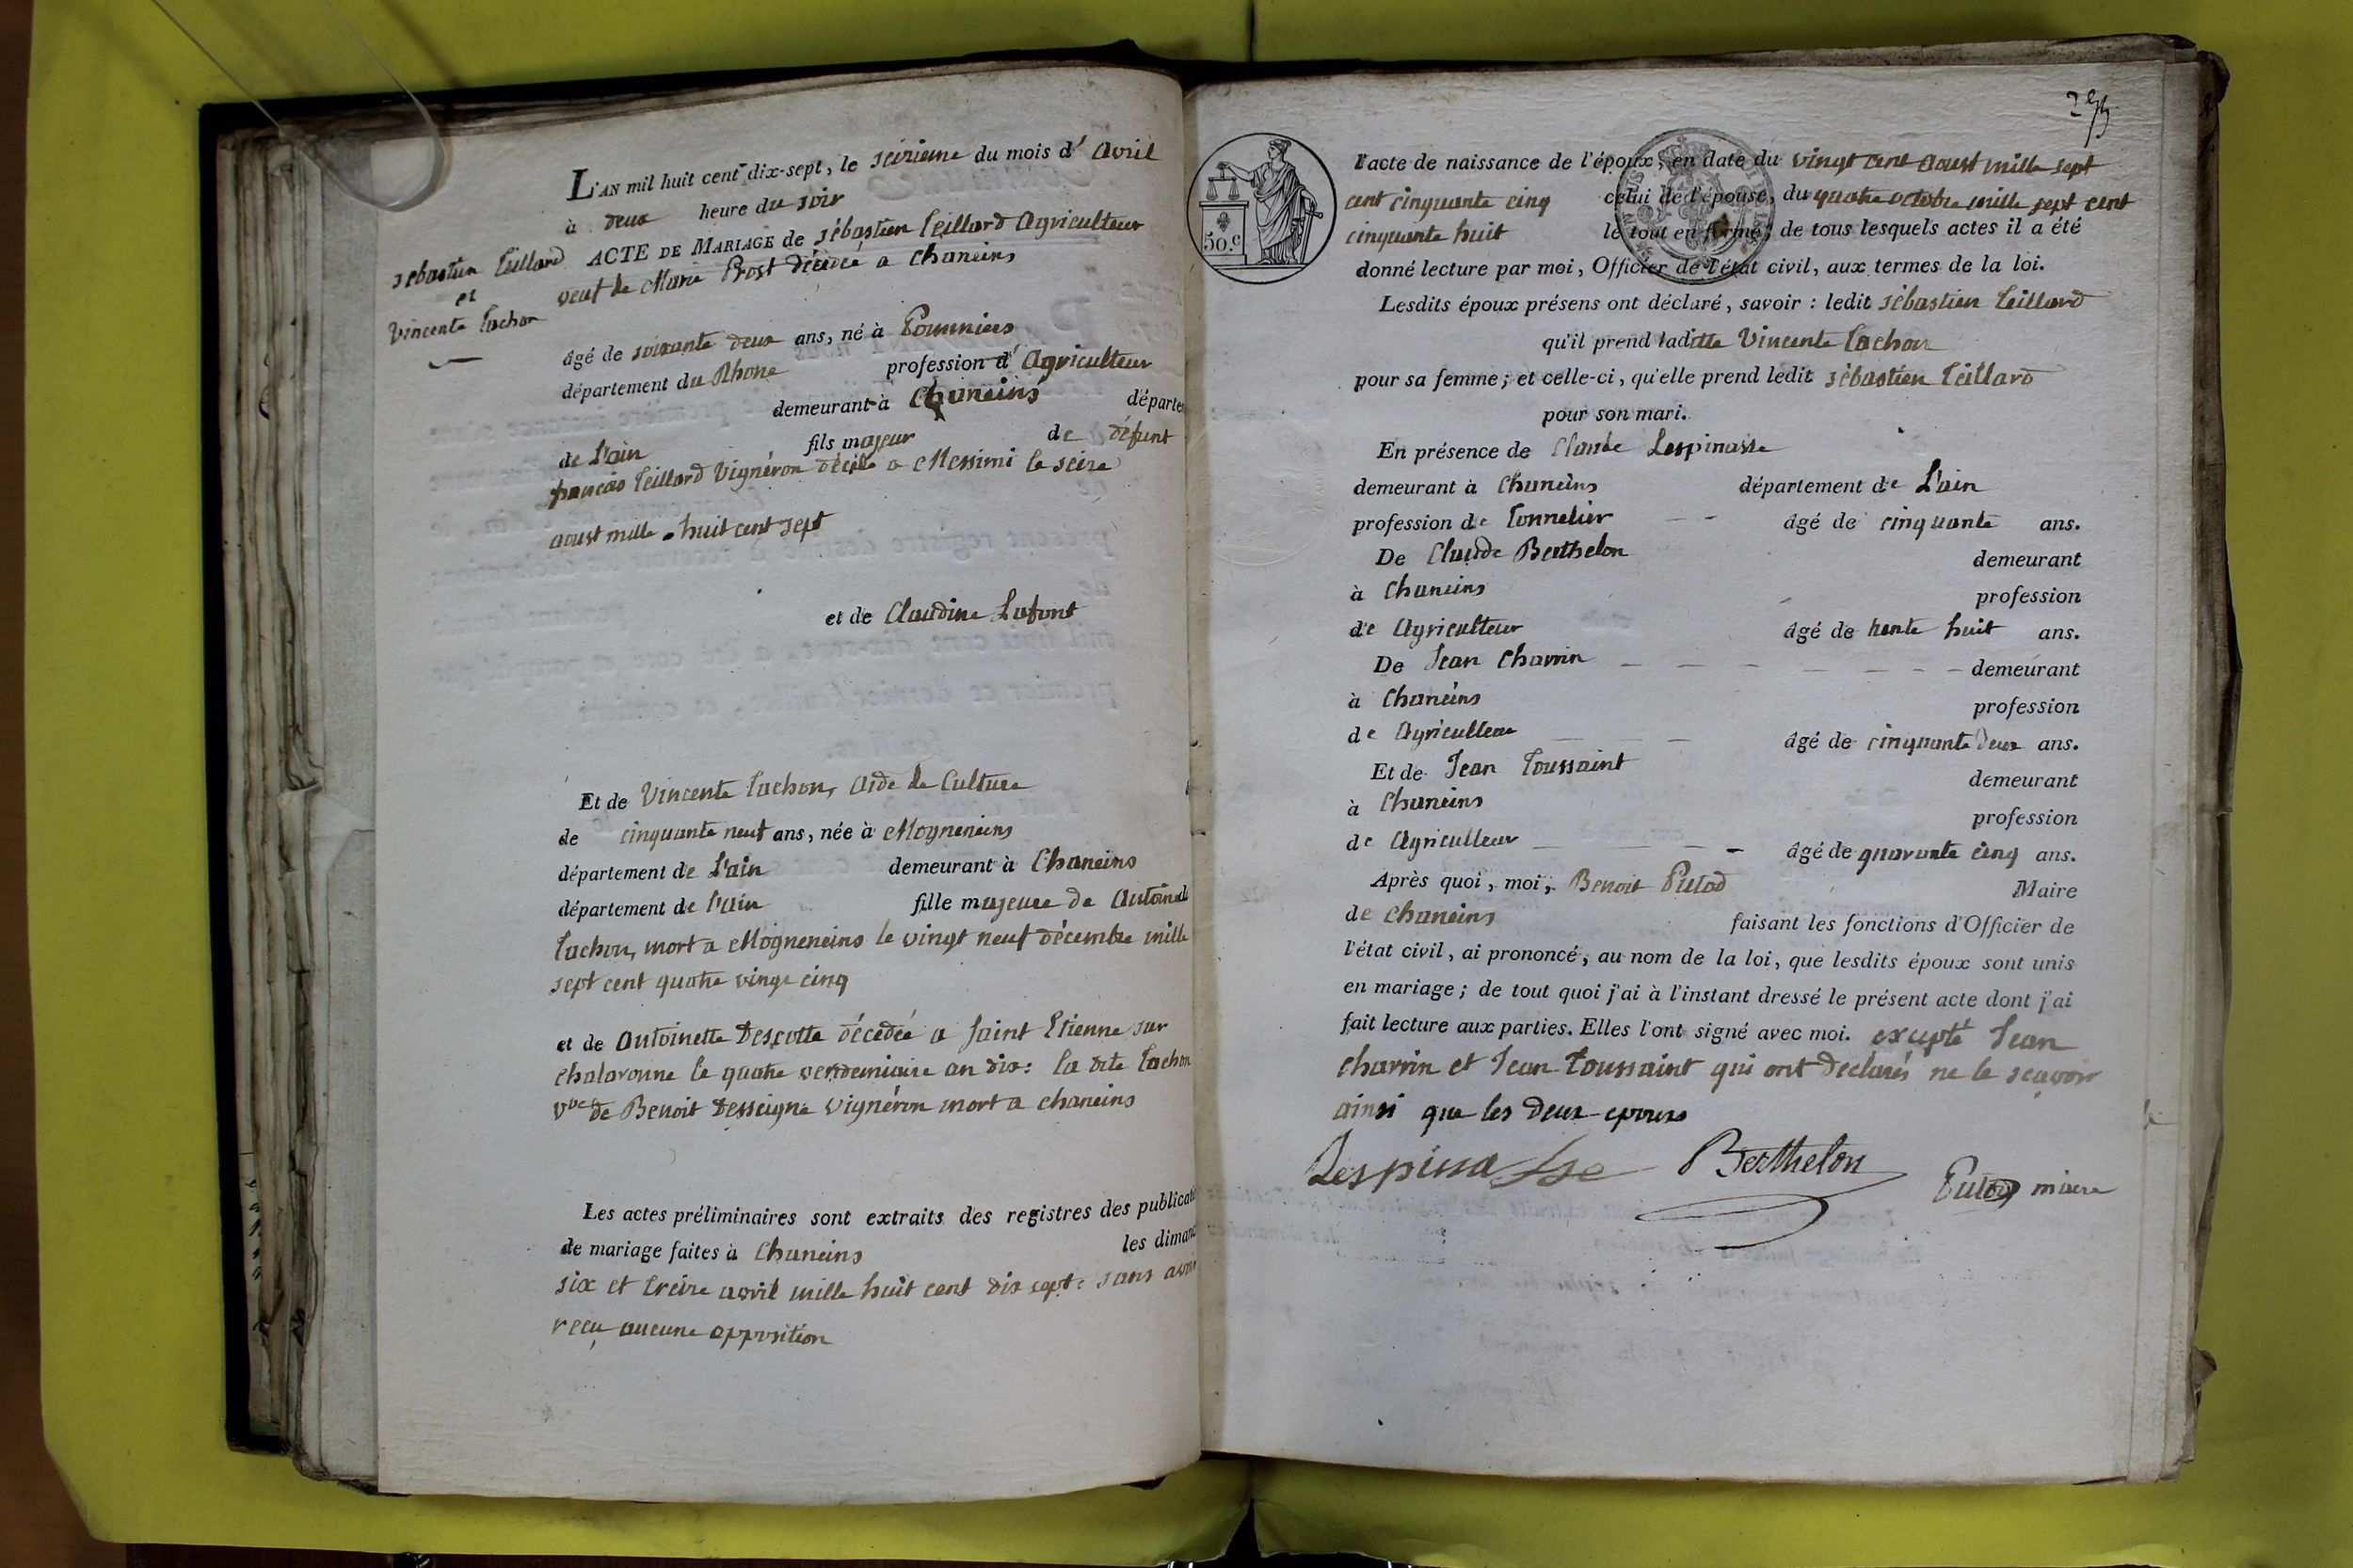 L'AN mil huit cent dix-sept, le seizieme du mois d' Avril
à deux heure du soir
sébastien Teillard
et
Vincente Tachon
ACTE DE MARIAGE de sébastien Teillard Agriculteur
veuf de Marie Prost décédée a Chaneins
âgé de soixante deux ans, né à Pommiers
département du Rhone profession d' Agriculteur
demeurant à Chaneins départe
de L'ain fils majeur de défunt
francois Teillard Vignéron décédé a Messimi le seize
aoust mille huit cent sept
et de Claudine Lafont
Et de Vincente Tachon, aide de Culture
de cinquante neuf ans, née à Mogneneins
département de L'ain demeurant à Chaneins
département de l'ain fille majeure de Antoine
Tachon, mort a Mogneneins le vingt neuf décembre mille
sept cent quatre vingt cinq
et de Antoinette Descotte décédée a saint Etienne sur
chalaronne le quatre vendemiaire an dix: la dite Tachon
vve de Benoit Desseigne vignéron mort a chaneins
Les actes préliminaires sont extraits des registres des publicati
de mariage faites à Chaneins les dimanc
six et treize avril mille huit cent dix sept: sans avoir
reçu aucune opposition
50.c
l'acte de naissance de l'époux, en date du vingt cinq aoust mille sept
cent cinquante cinq celui de l'épouse, du quatre octobre mille sept cent
cinquante huit le tout en forme; de tous lesquels actes il a été
donné lecture par moi, Officier de l'état civil, aux termes de la loi.
Lesdits époux présens ont déclaré, savoir : ledit sébastien Teillard
qu'il prend laditte Vincente Tachon
pour sa femme; et celle-ci, qu'elle prend ledit sébastien Teillard
pour son mari.
En présence de Claude Lespinasse
demeurant à Chaneins département de L'ain
profession de Tonnelier âgé de cinquante ans.
De Claude Berthelon demeurant
à Chaneins profession
de Agriculteur âgé de trente huit ans.
De Jean Charrin demeurant
à Chaneins profession
de Agriculteur âgé de cinquante deux ans.
Et de Jean Toussaint demeurant
à Chaneins profession
de Agriculteur âgé de quarante cinq ans.
Après quoi, moi, Benoit Putod Maire
de Chaneins faisant les fonctions d'Officier de
l'état civil, ai prononcé, au nom de la loi, que lesdits époux sont unis
en mariage; de tout quoi j'ai à l'instant dressé le présent acte dont j'ai
fait lecture aux parties. Elles l'ont signé avec moi. excepté Jean
Charrin et Jean Toussaint qui ont declarés ne le sçavoir
ainsi que les deux epoux
Lespinasse Berthelon Putod maire